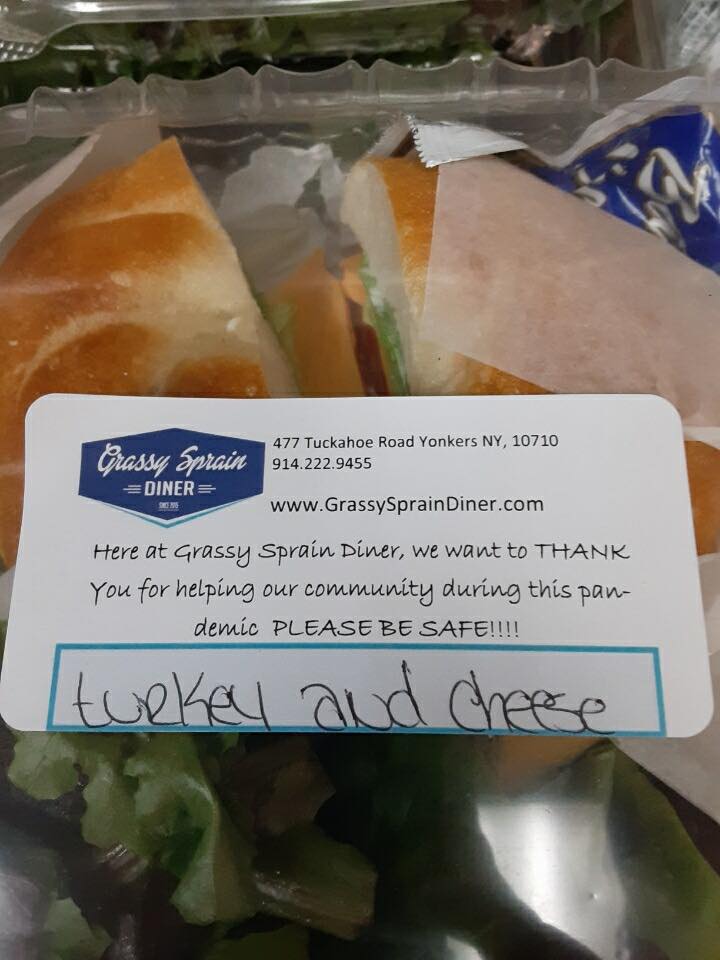 Grassy Sprain
DINER
477 Tuckahoe Road Yonkers NY, 10710
914.222.9455
www.GrassySprainDiner.com
Here at Grassy Sprain Diner, we want to THANK
You for helping our community during this pan-
demic PLEASE BE SAFE!!!!
turkey and cheese